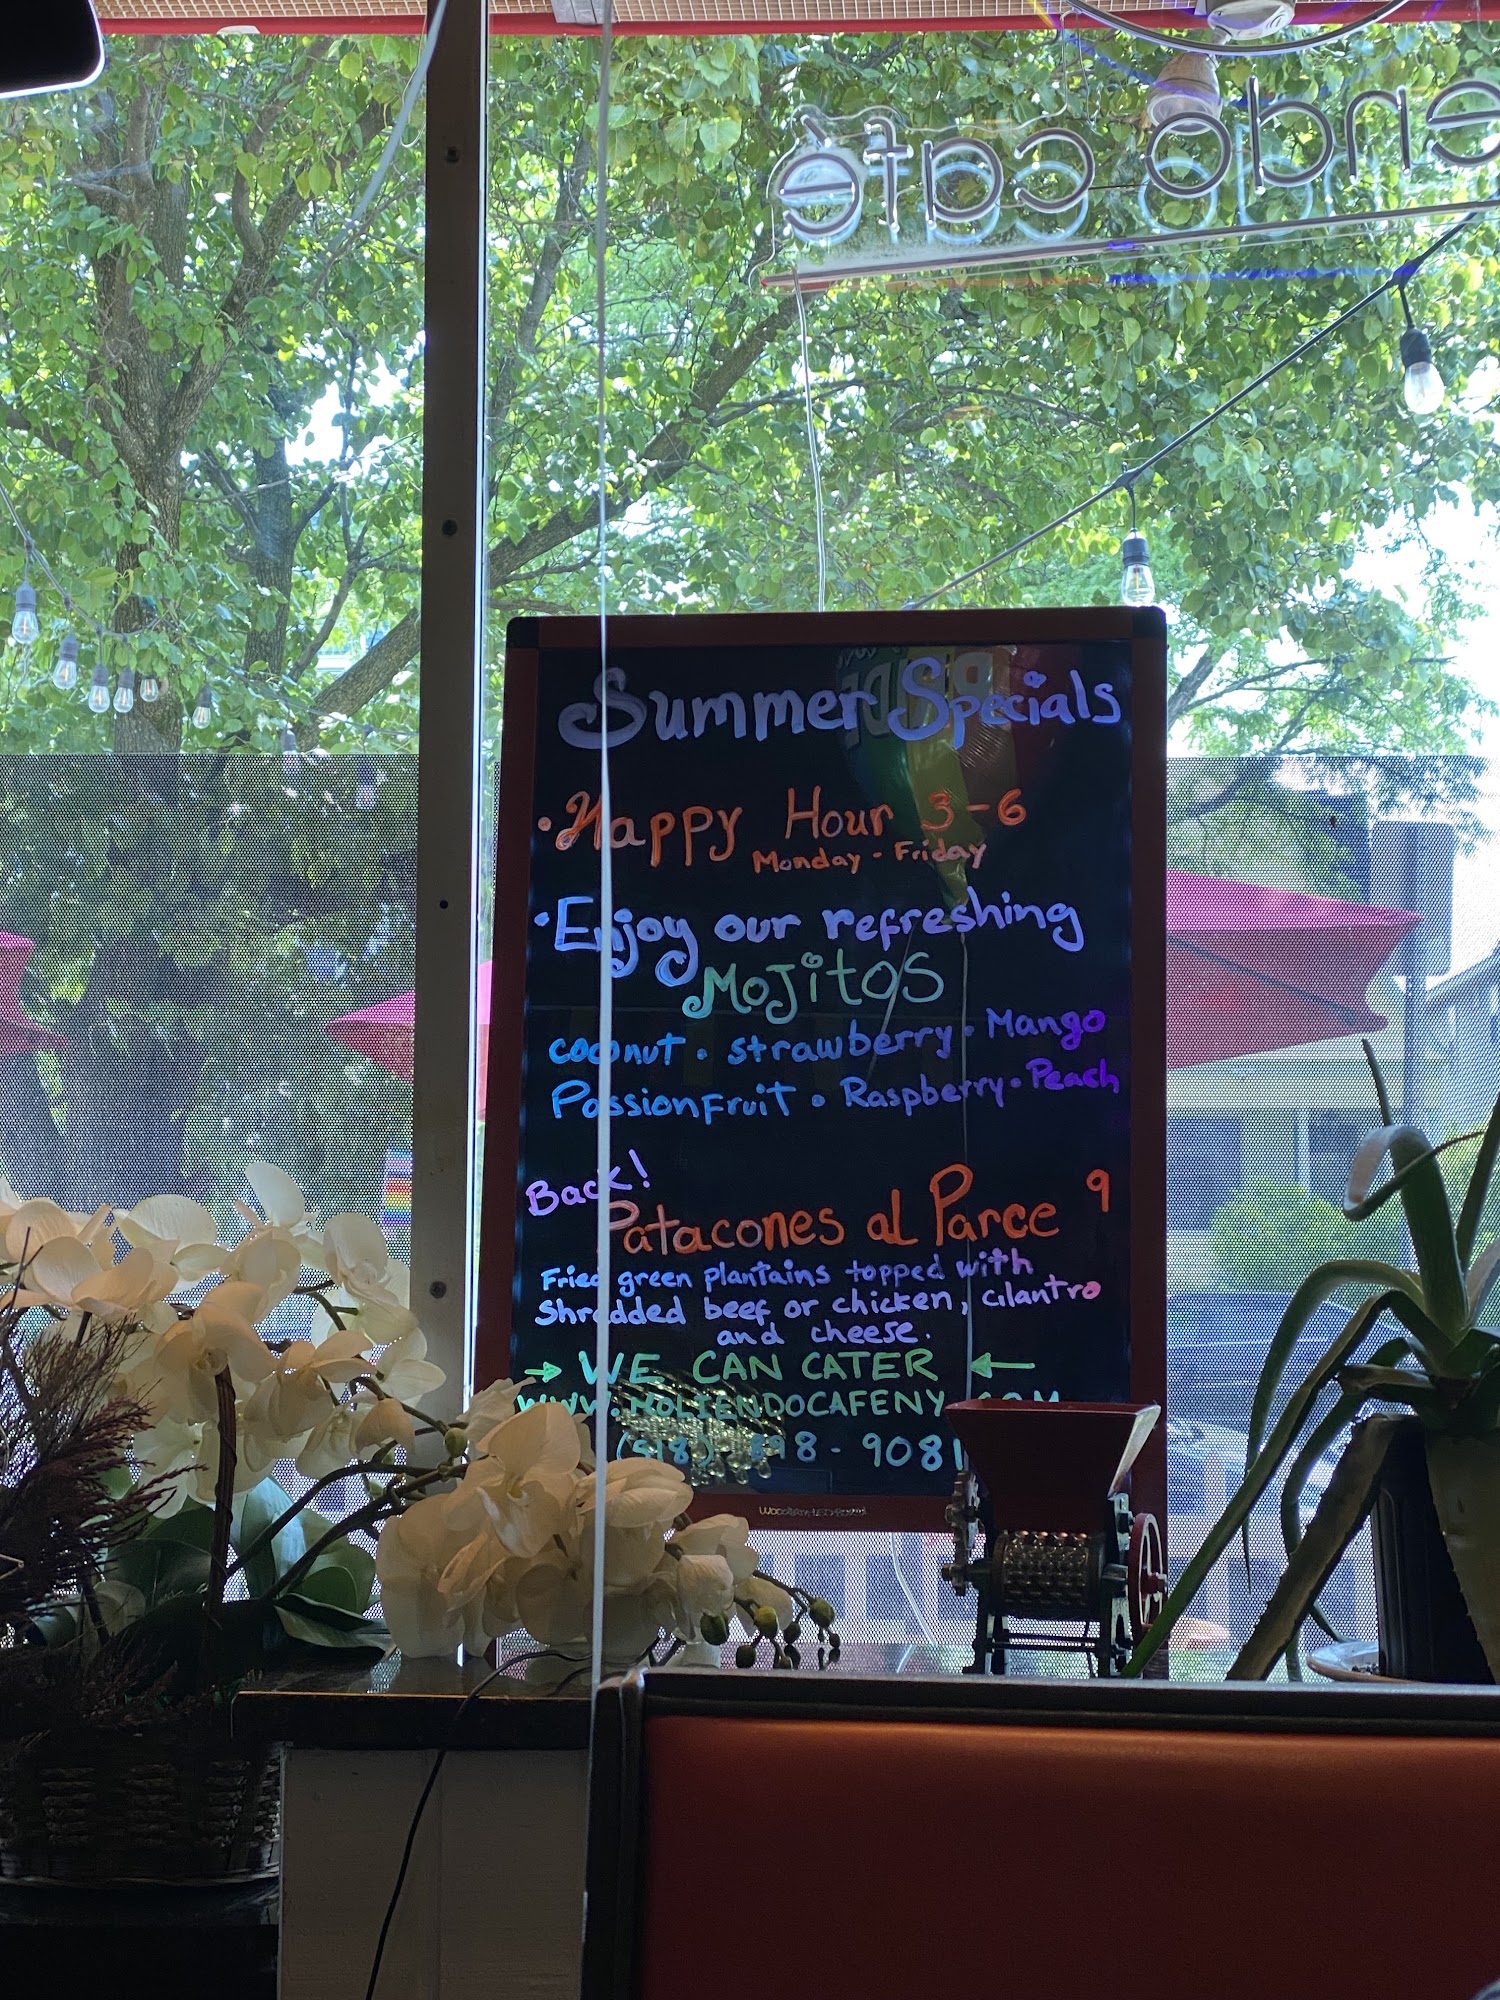 endo cafè
Summer Specials
• Happy Hour 3-6
Monday - Friday
• Enjoy our refreshing
Mojitos
coconut • strawberry • Mango
Passionfruit • Raspberry • Peach
Back!
Patacones al Parce 9
Fried green plantains topped with
Shredded beef or chicken, cilantro
and cheese.
→ WE CAN CATER ←
WWW.MOLIENDOCAFENY.COM
(518) 898-9081